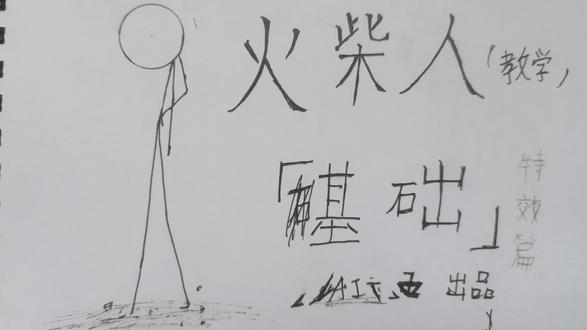 火柴人「教学」
「基础」
特效篇
出品